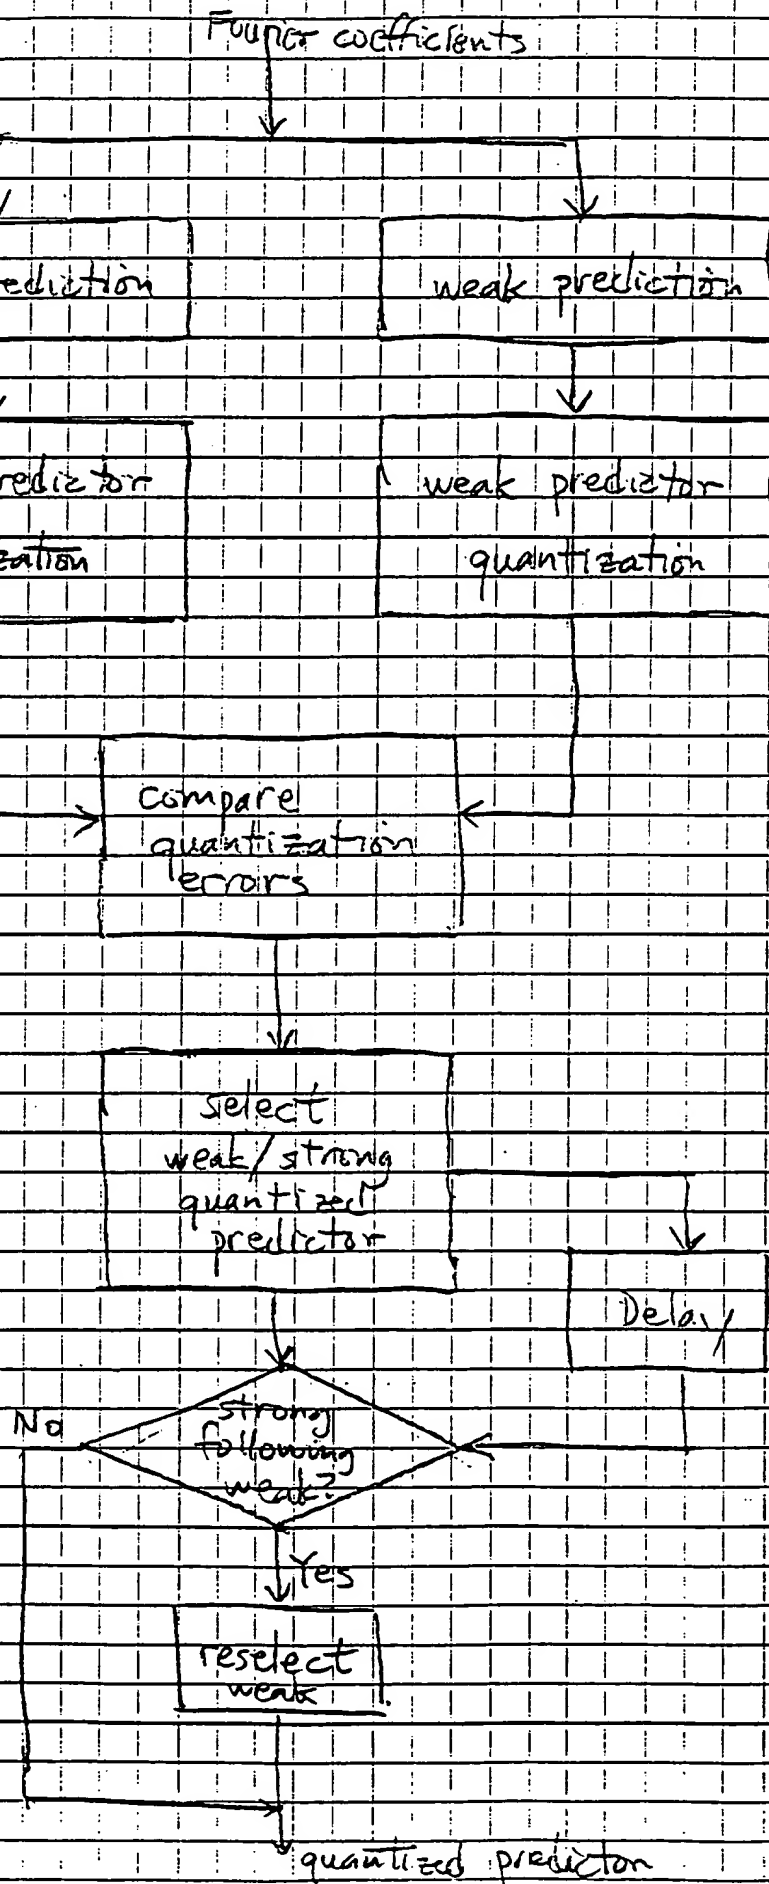 Fourier coefficients
ediction
weak prediction
redictor
zation
weak predictor
quantization
compare
quantization
errors
select
weak/strong
quantized
predictor
Delay
strong
following
weak?
No
Yes
reselect
weak
quantized prediction